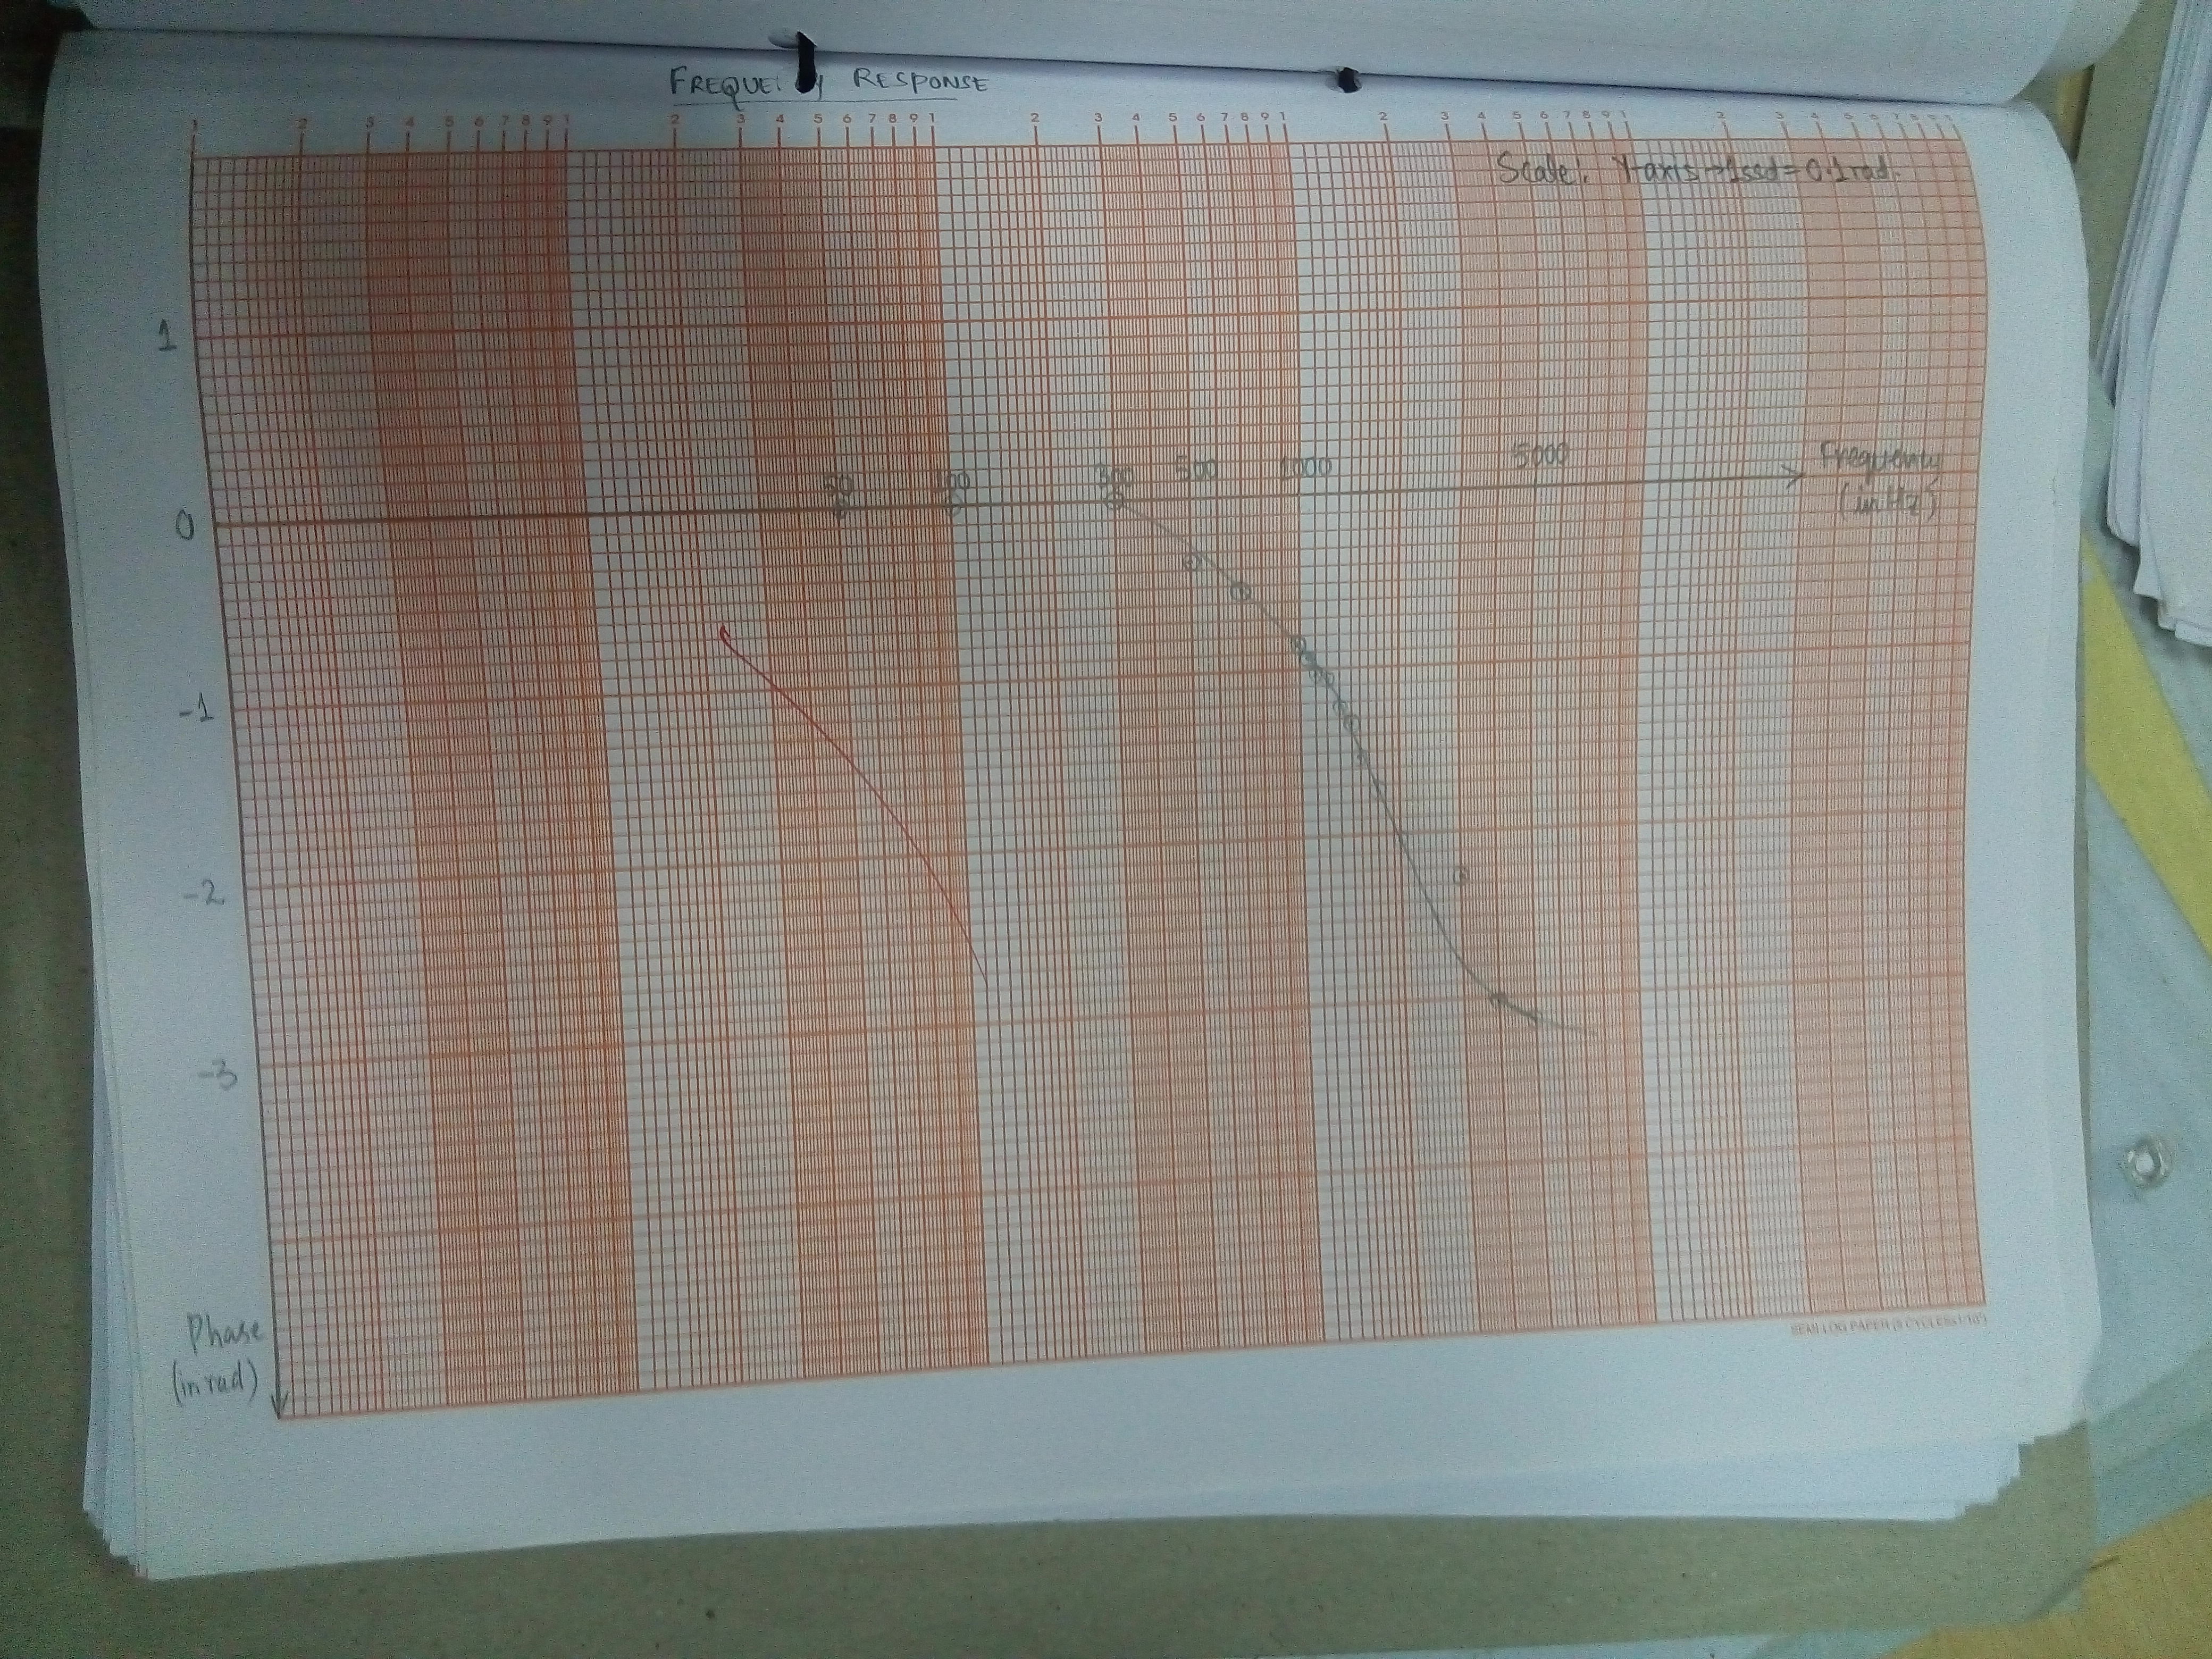 FREQUENCY RESPONSE
1 2 3 4 5 6 7 8 9 1 2 3 4 5 6 7 8 9 1 2 3 4 5 6 7 8 9 1 2 3 4 5 6 7 8 9 1 2 3 4 5 6 7 8 9 1
Scale: Y-axis → 1 ssd = 0.1 rad.
1
50 100 300 500 1000 5000 Frequency
(in Hz)
0
-1
-2
-3
Phase
(in rad)
SEMI LOG PAPER (5 CYCLES X 1/10")